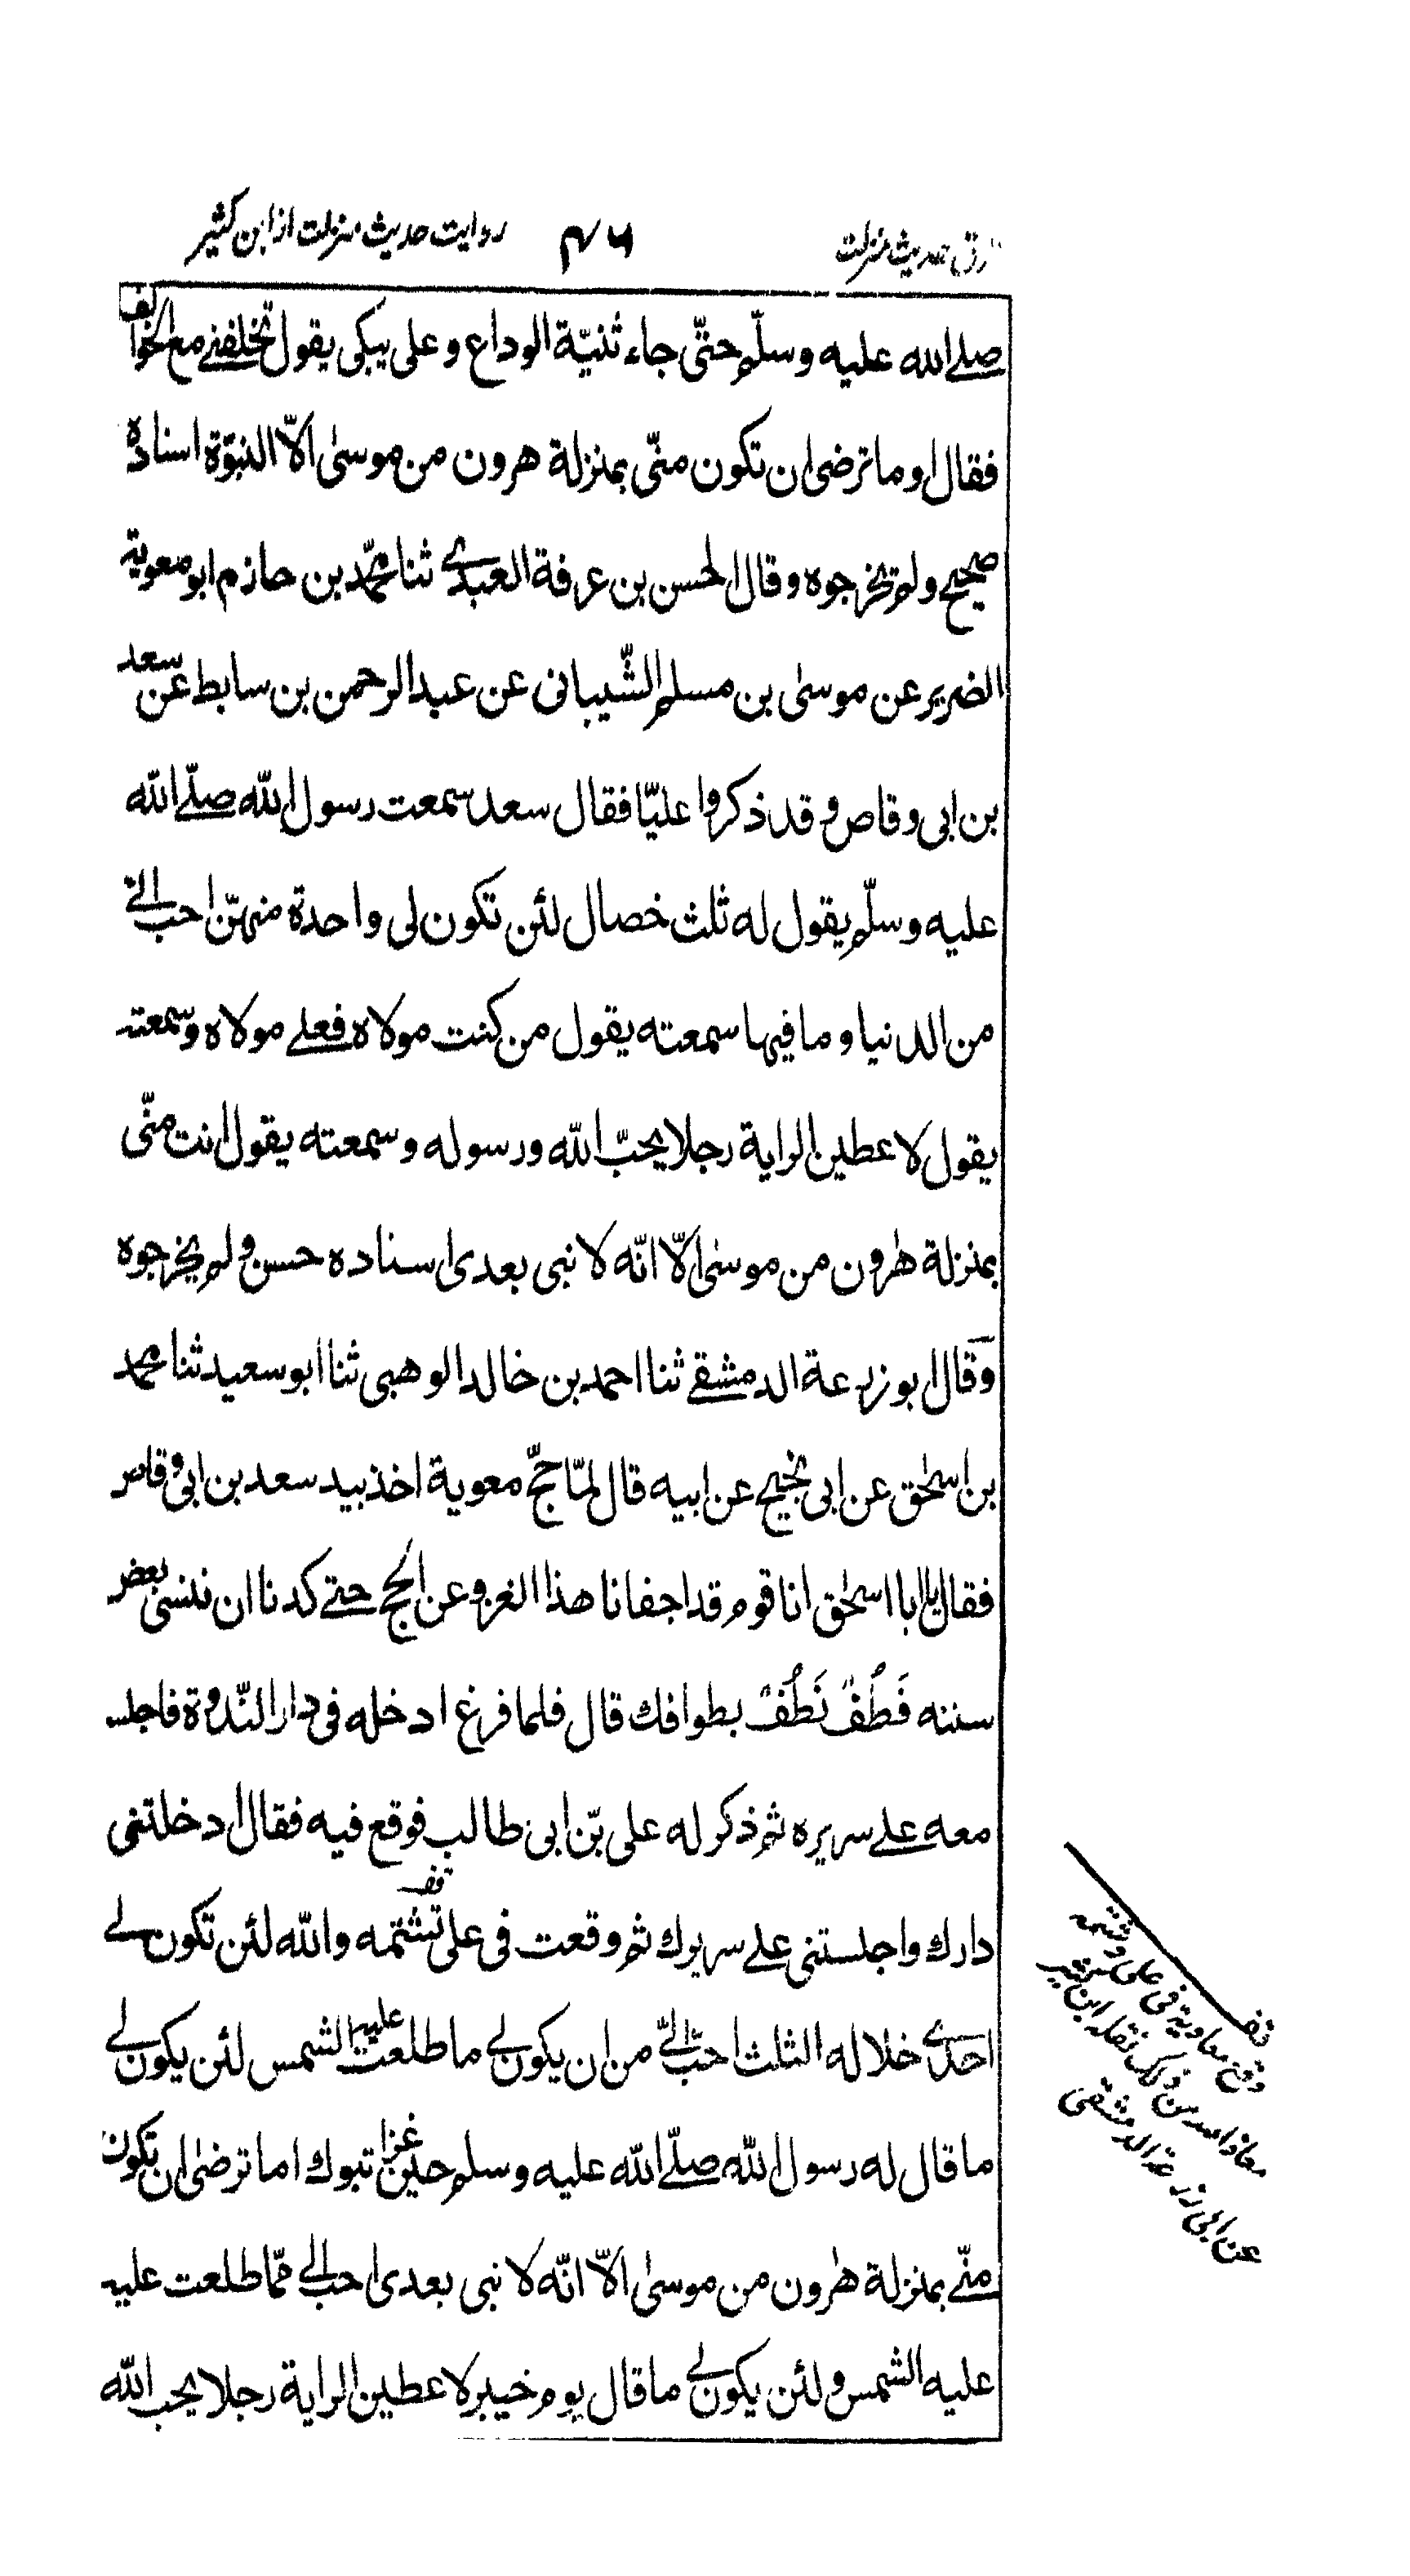 طرق حدیث منزلت ۴۶ روایت حدیث منزلت از ابن کثیر
صلے الله علیه وسلّم حتّی جاء ثنیّة الوداع و علی یبکی یقول تخلفنے مع الخوالف
فقال او ما ترضی ان تکون منّی بمنزلة هرون من موسیٰ الّا النبوّة اسناده
صحیح ولم یخرجوه وقال الحسن بن عرفة العبدے ثنا محمّد بن حازم ابو معویة
الضریر عن موسیٰ بن مسلم الشّیبانی عن عبد الرحمن بن سابط عن سعد
بن ابی وقاص وقد ذکروا علیّا فقال سعد سمعت رسول الله صلّے الله
علیه وسلّم یقول له ثلث خصال لئن تکون لی واحدة منهنّ احب الےّ
من الدنیا وما فیها سمعته یقول من کنت مولاه فعلے مولاه وسمعته
یقول لاعطین الرایة رجلا یحبّ الله ورسوله وسمعته یقول انت منّی
بمنزلة هٰرون من موسیٰ الّا انّه لا نبی بعدی اسناده حسن ولم یخرجوه
وقال ابو زرعة الدمشقے ثنا احمد بن خالد الوهبی ثنا ابو سعید ثنا محمد
بن اسحٰق عن ابی نجیح عن ابیه قال لمّا حجّ معویة اخذ بید سعد بن ابی وقاص
فقال یا ابا اسحٰق انا قوم قد اجفانا هذا الغزو عن الحج حتے کدنا ان ننسی بعض
سننه فَطُفْ نَطُفْ بطوافك قال فلما فرغ ادخله فی دار النّدوة فاجلسه
معه علے سریره ثم ذکر له علی بّن ابی طالب فوقع فیه فقال ادخلتنی
دارك واجلستنی علے سریرك ثم وقعت فی علی تشتمه والله لئن تکون لے
قف
احدے خلاله الثلث احبّ الیّ من ان یکون لے ما طلعت علیه الشمس لئن یکون لے
ما قال له رسول الله صلّے الله علیه وسلم حین غزا تبوك اما ترضیٰ ان تکون
منّے بمنزلة هٰرون من موسیٰ الّا انّه لا نبی بعدی احب الے ممّا طلعت علیه
علیه الشمس و لئن یکون لے ما قال یوم خیبر لاعطین الرایة رجلا یحب الله
قف
وقع معاویة فی علی وشتمه
معاذ الله من ذلک نقله ابن کثیر
عن ابی زرعة الدمشقی